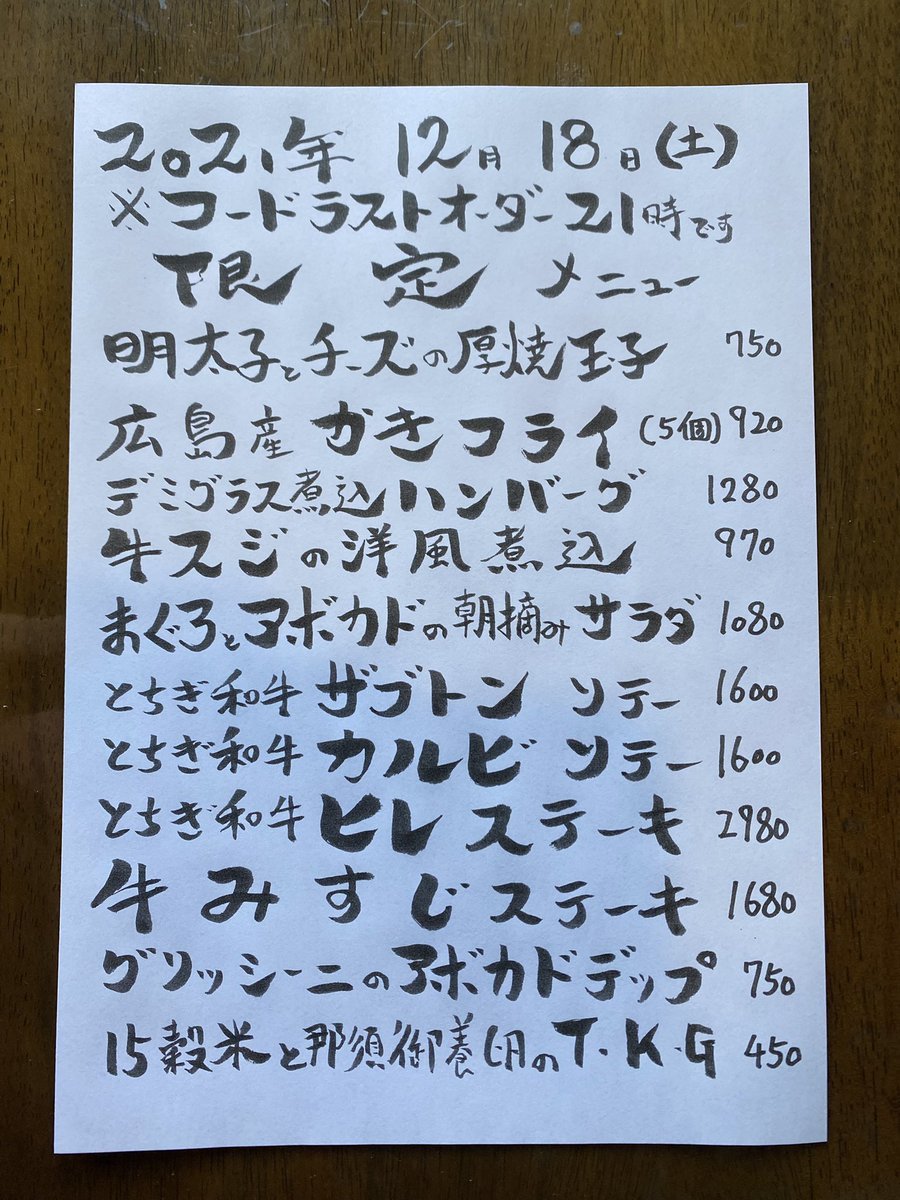 2021年 12月 18日(土)
※フードラストオーダー21時です
限定メニュー
明太子とチーズの厚焼玉子 750
広島産 かきフライ(5個)920
デミグラス煮込ハンバーグ 1280
牛スジの洋風煮込 970
まぐろとアボカドの朝摘みサラダ 1080
とちぎ和牛 ザブトン ソテー 1600
とちぎ和牛 カルビ ソテー 1600
とちぎ和牛 ヒレステーキ 2980
牛みすじステーキ 1680
グリッシーニのアボカドデップ 750
15穀米と那須御養卵のT.K.G 450